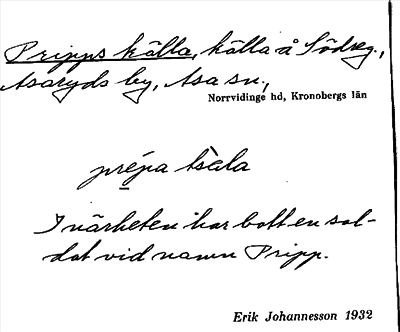 Pripps källa, källa å Södreg.,
Asaryds by, Asa sn.,
Norrvidinge hd, Kronobergs län
prépa tsèla
I närheten har bott en sol-
dat vid namn Pripp.
Erik Johannesson 1932